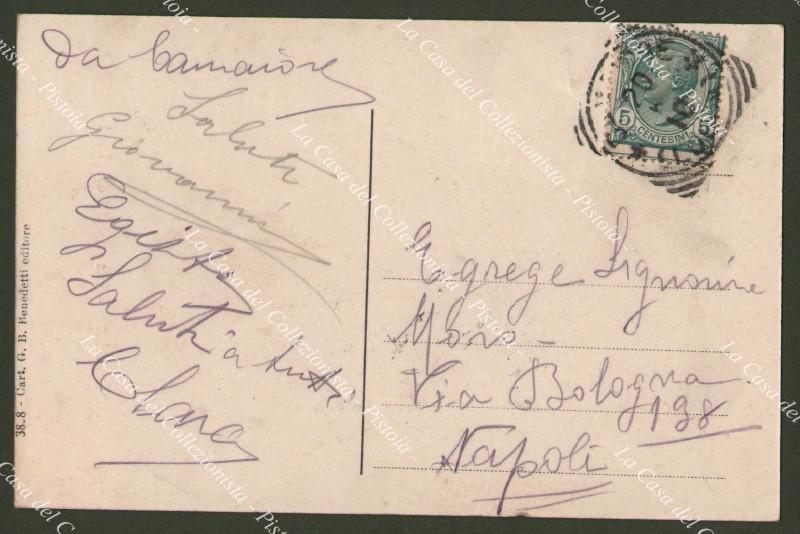 Da Camaiore
Saluti
Giovanni
Egisto
Saluti a tutti
Clara
38.8 - Cart. G. B. Benedetti editore
5 CENTESIMI 5
Egrege Signorine
Moro -
Via Bologna
138
Napoli
La Casa del Collezionista - Pistoia